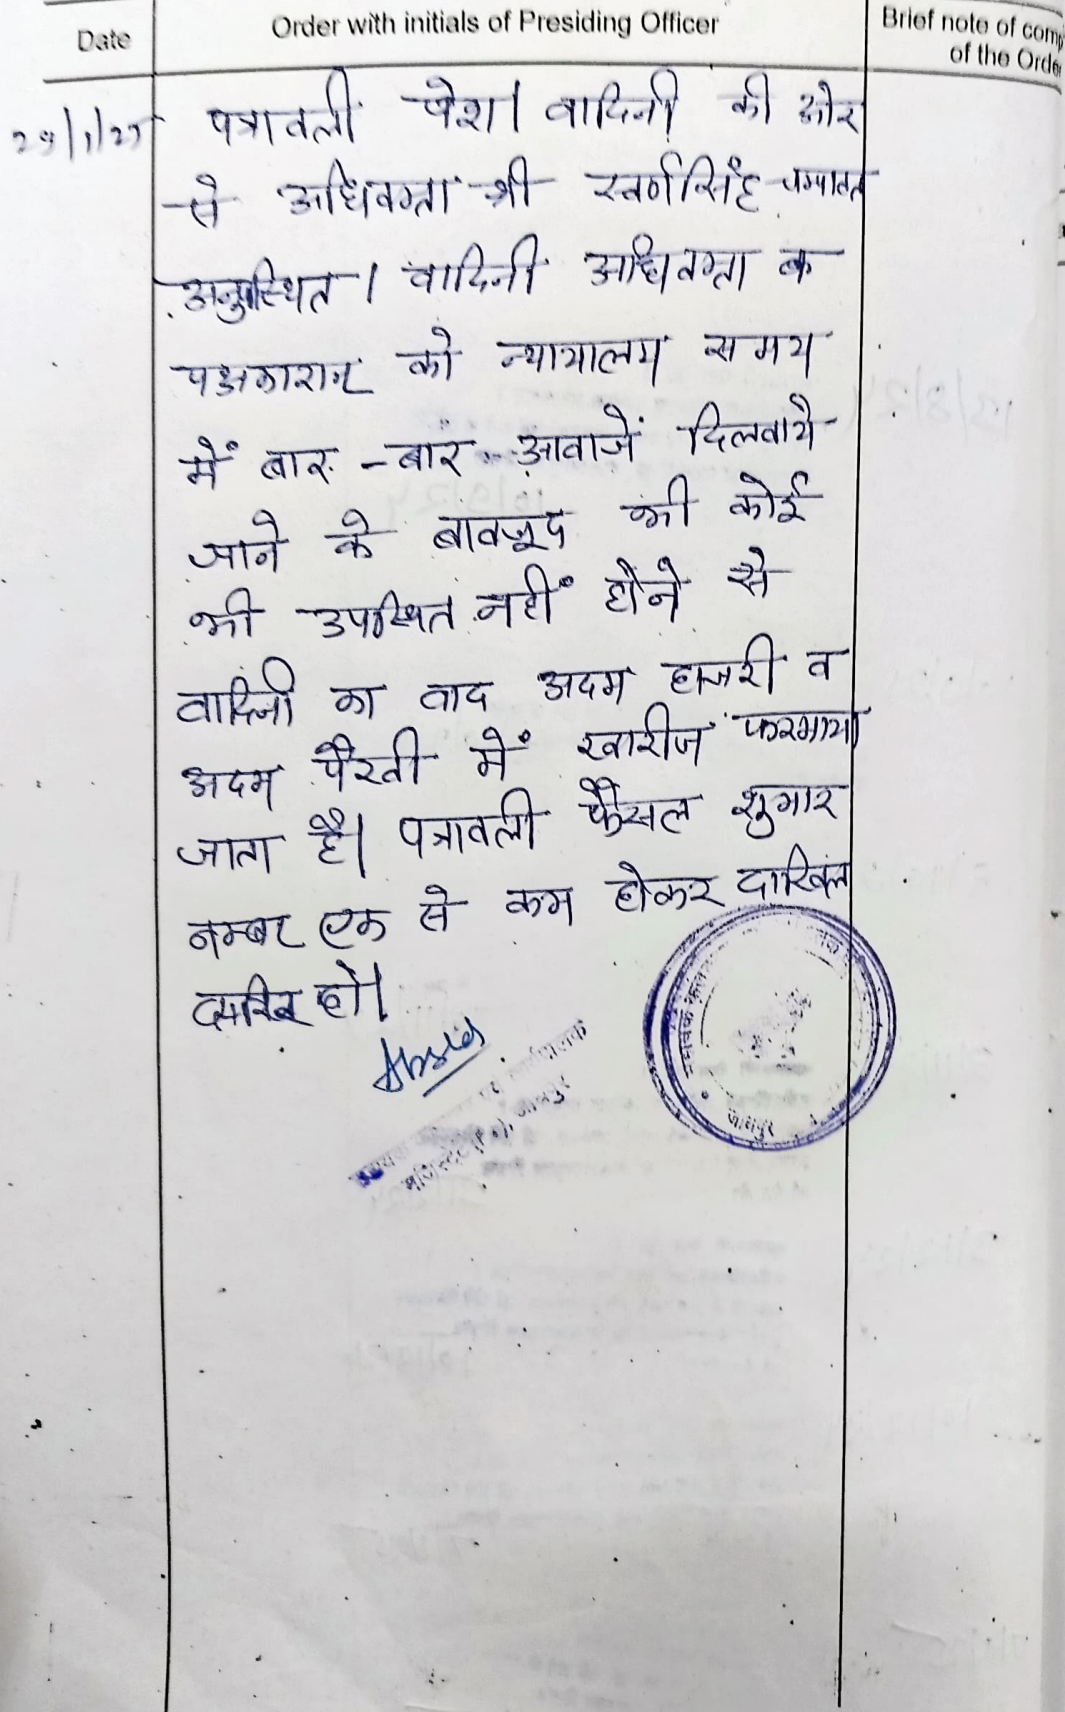 Date
Order with initials of Presiding Officer
Brief note of comp
of the Orde
पत्रावली पेश। वादिनी की ओर
से अधिवक्ता श्री स्वर्णसिंह चम्पावत
अनुपस्थित। वादिनी अधिवक्ता व
पक्षकारान् को न्यायालय समय
में बार-बार आवाजें दिलवाये
जाने के बावजूद भी कोई
भी उपस्थित नहीं होने से
वादिनी का वाद अदम हाजरी व
अदम पैरवी में खारीज फरमाया
जाता है। पत्रावली फैसल शुमार
नम्बर एक से कम होकर दाखिल
दफ्तर हो।
जोधपुर